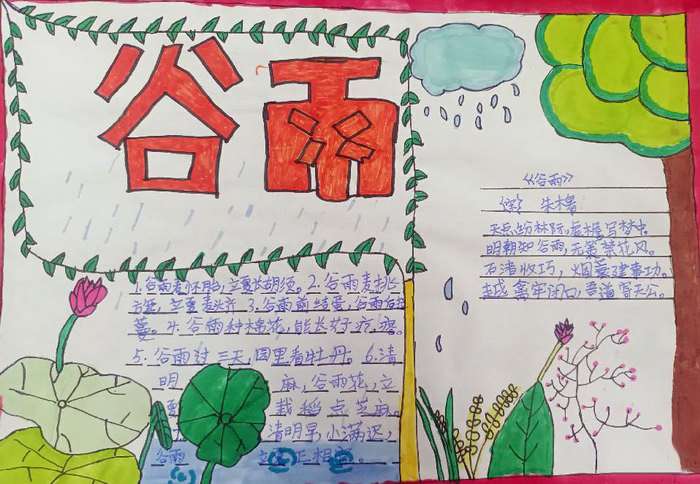 谷雨
1.谷雨麦怀胎,立夏长胡须。2.谷雨麦挑
旗,立夏麦头齐 3.谷雨前结蛋,谷雨后
蔓。4.谷雨种棉花,能长好疙瘩。
5.谷雨过三天,园里看牡丹。6.清
明 麻,谷雨花,立
夏 栽稻点芝麻。
清明早,小满迟,
谷雨 正相
《谷雨》
朱槔
天点纷林际,虚檐写梦中。
明朝知谷雨,无策禁花风。
石渚收机巧,烟蓑建事功。
越禽牢闭口,吾道寄天公。